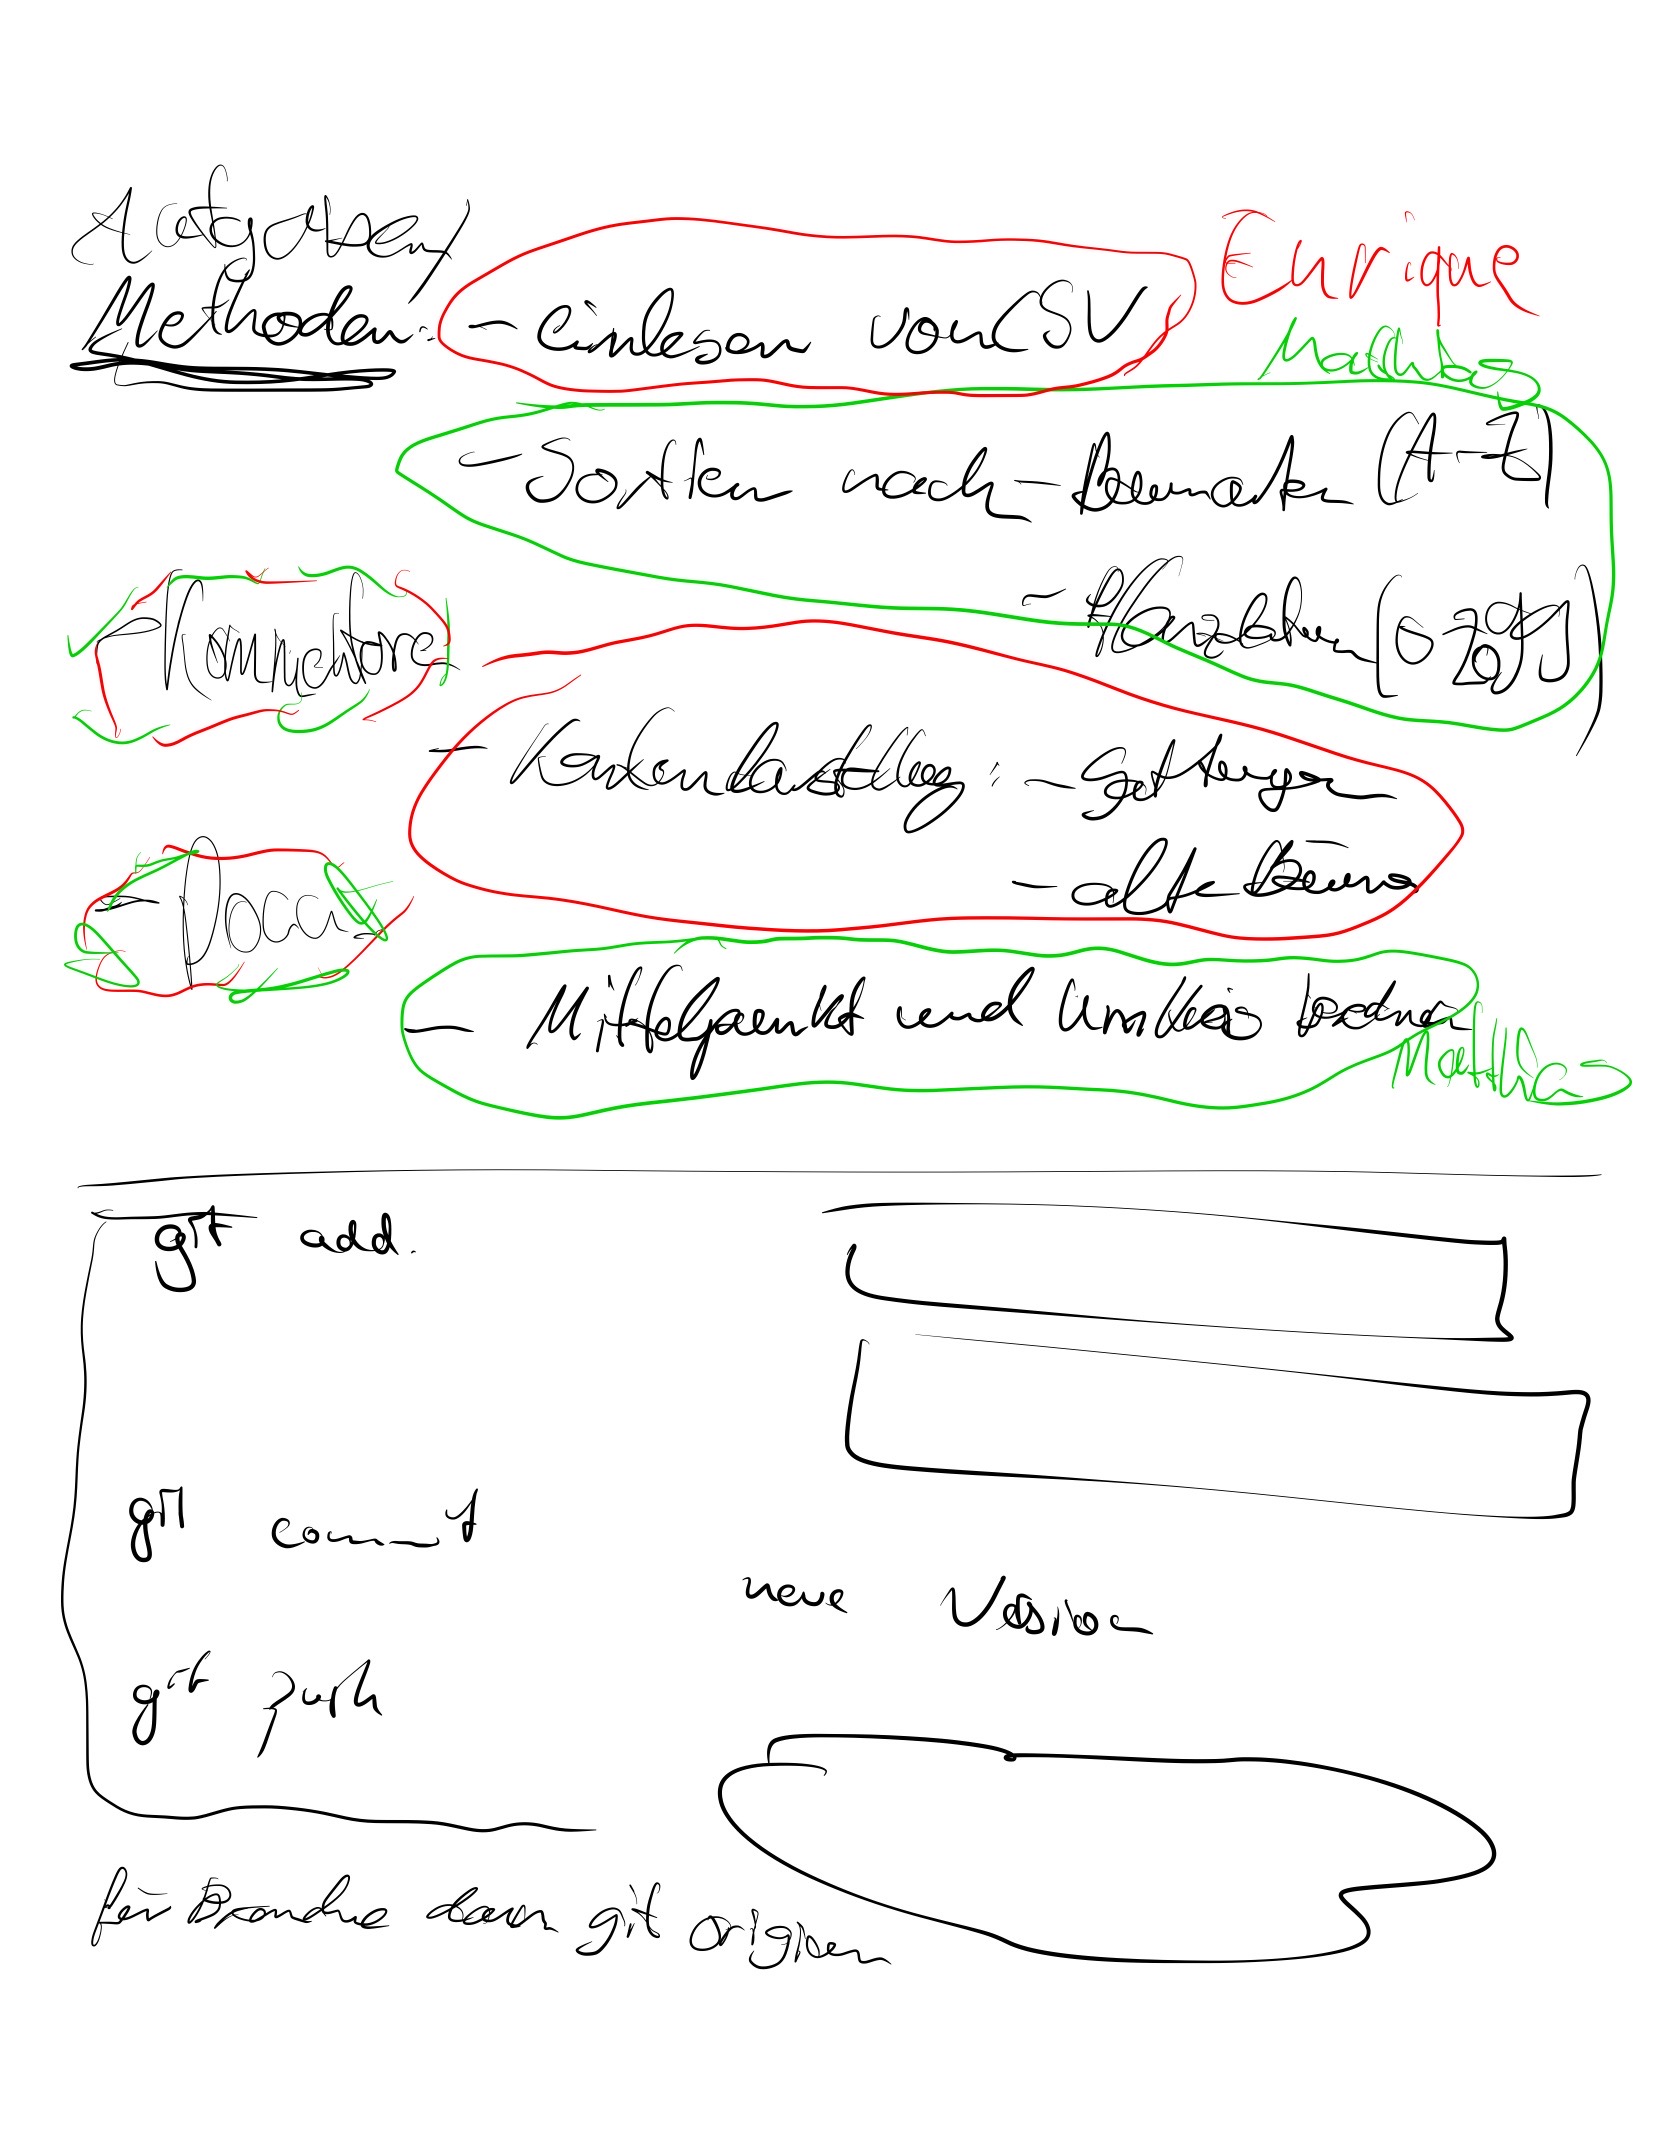 Aufgaben/
Methoden:
- Einlesen von CSV
Enrique
Matthias
- Sortten nach - Baumarten (A-Z)
- Pflanzdatum (0-2099)
- Kommentare
- Kartendarstellung: - Gattungen
- alte Bäume
- Docu
- Mittelpunkt und Umkreis
Matthias
git add.
git commit
neue Version
git push
für Branche dann git origin